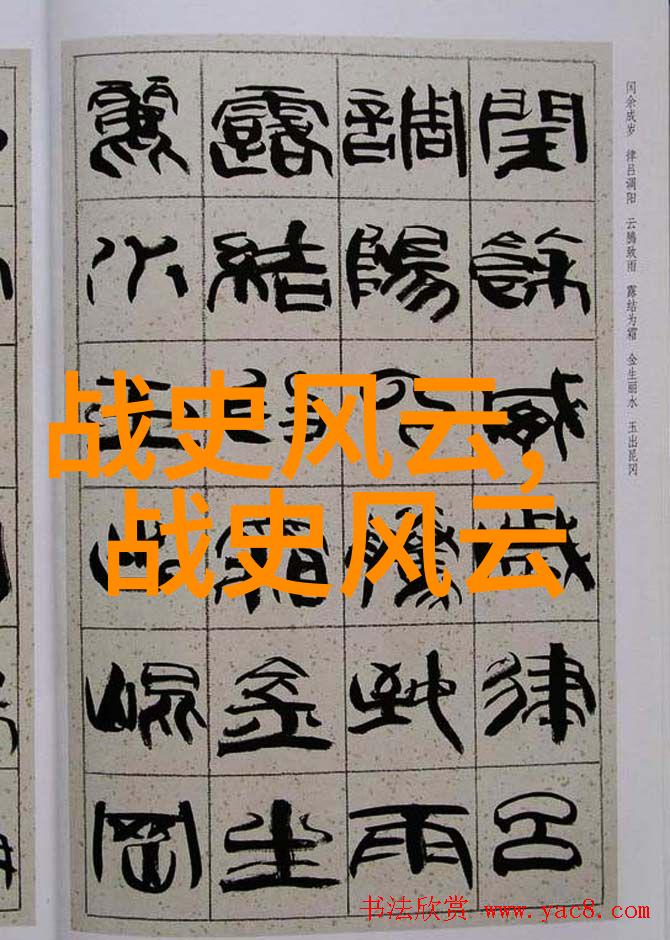 闰余成岁 律吕调阳 云腾致雨 露结为霜 金生丽水 玉出昆冈
閏餘成歲律呂
調陽雲騰致雨
露結為霜金生
麗水玉出崐岡
战史风云,
战史风云
书法欣赏 www.yac8.com